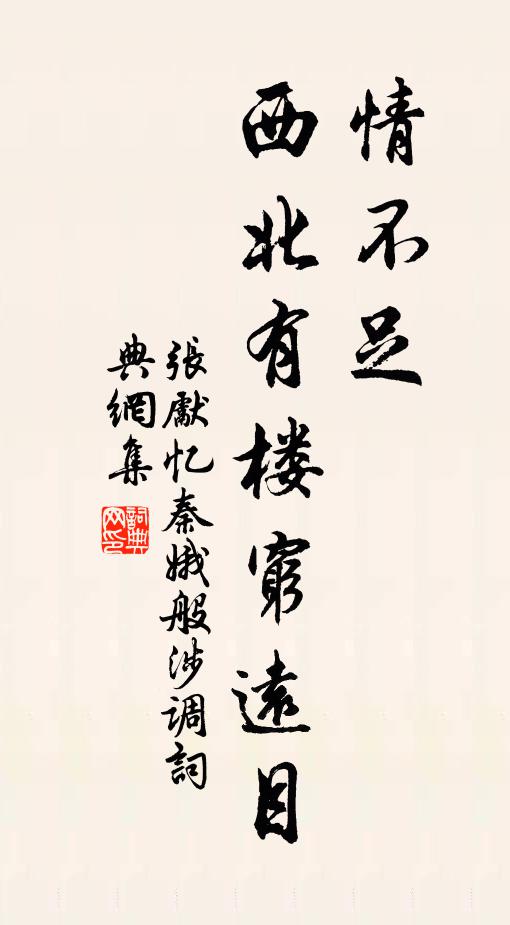 情不足
西北有楼窮遠目
張獻忆秦娥般涉调詞
典網集
詞典网印